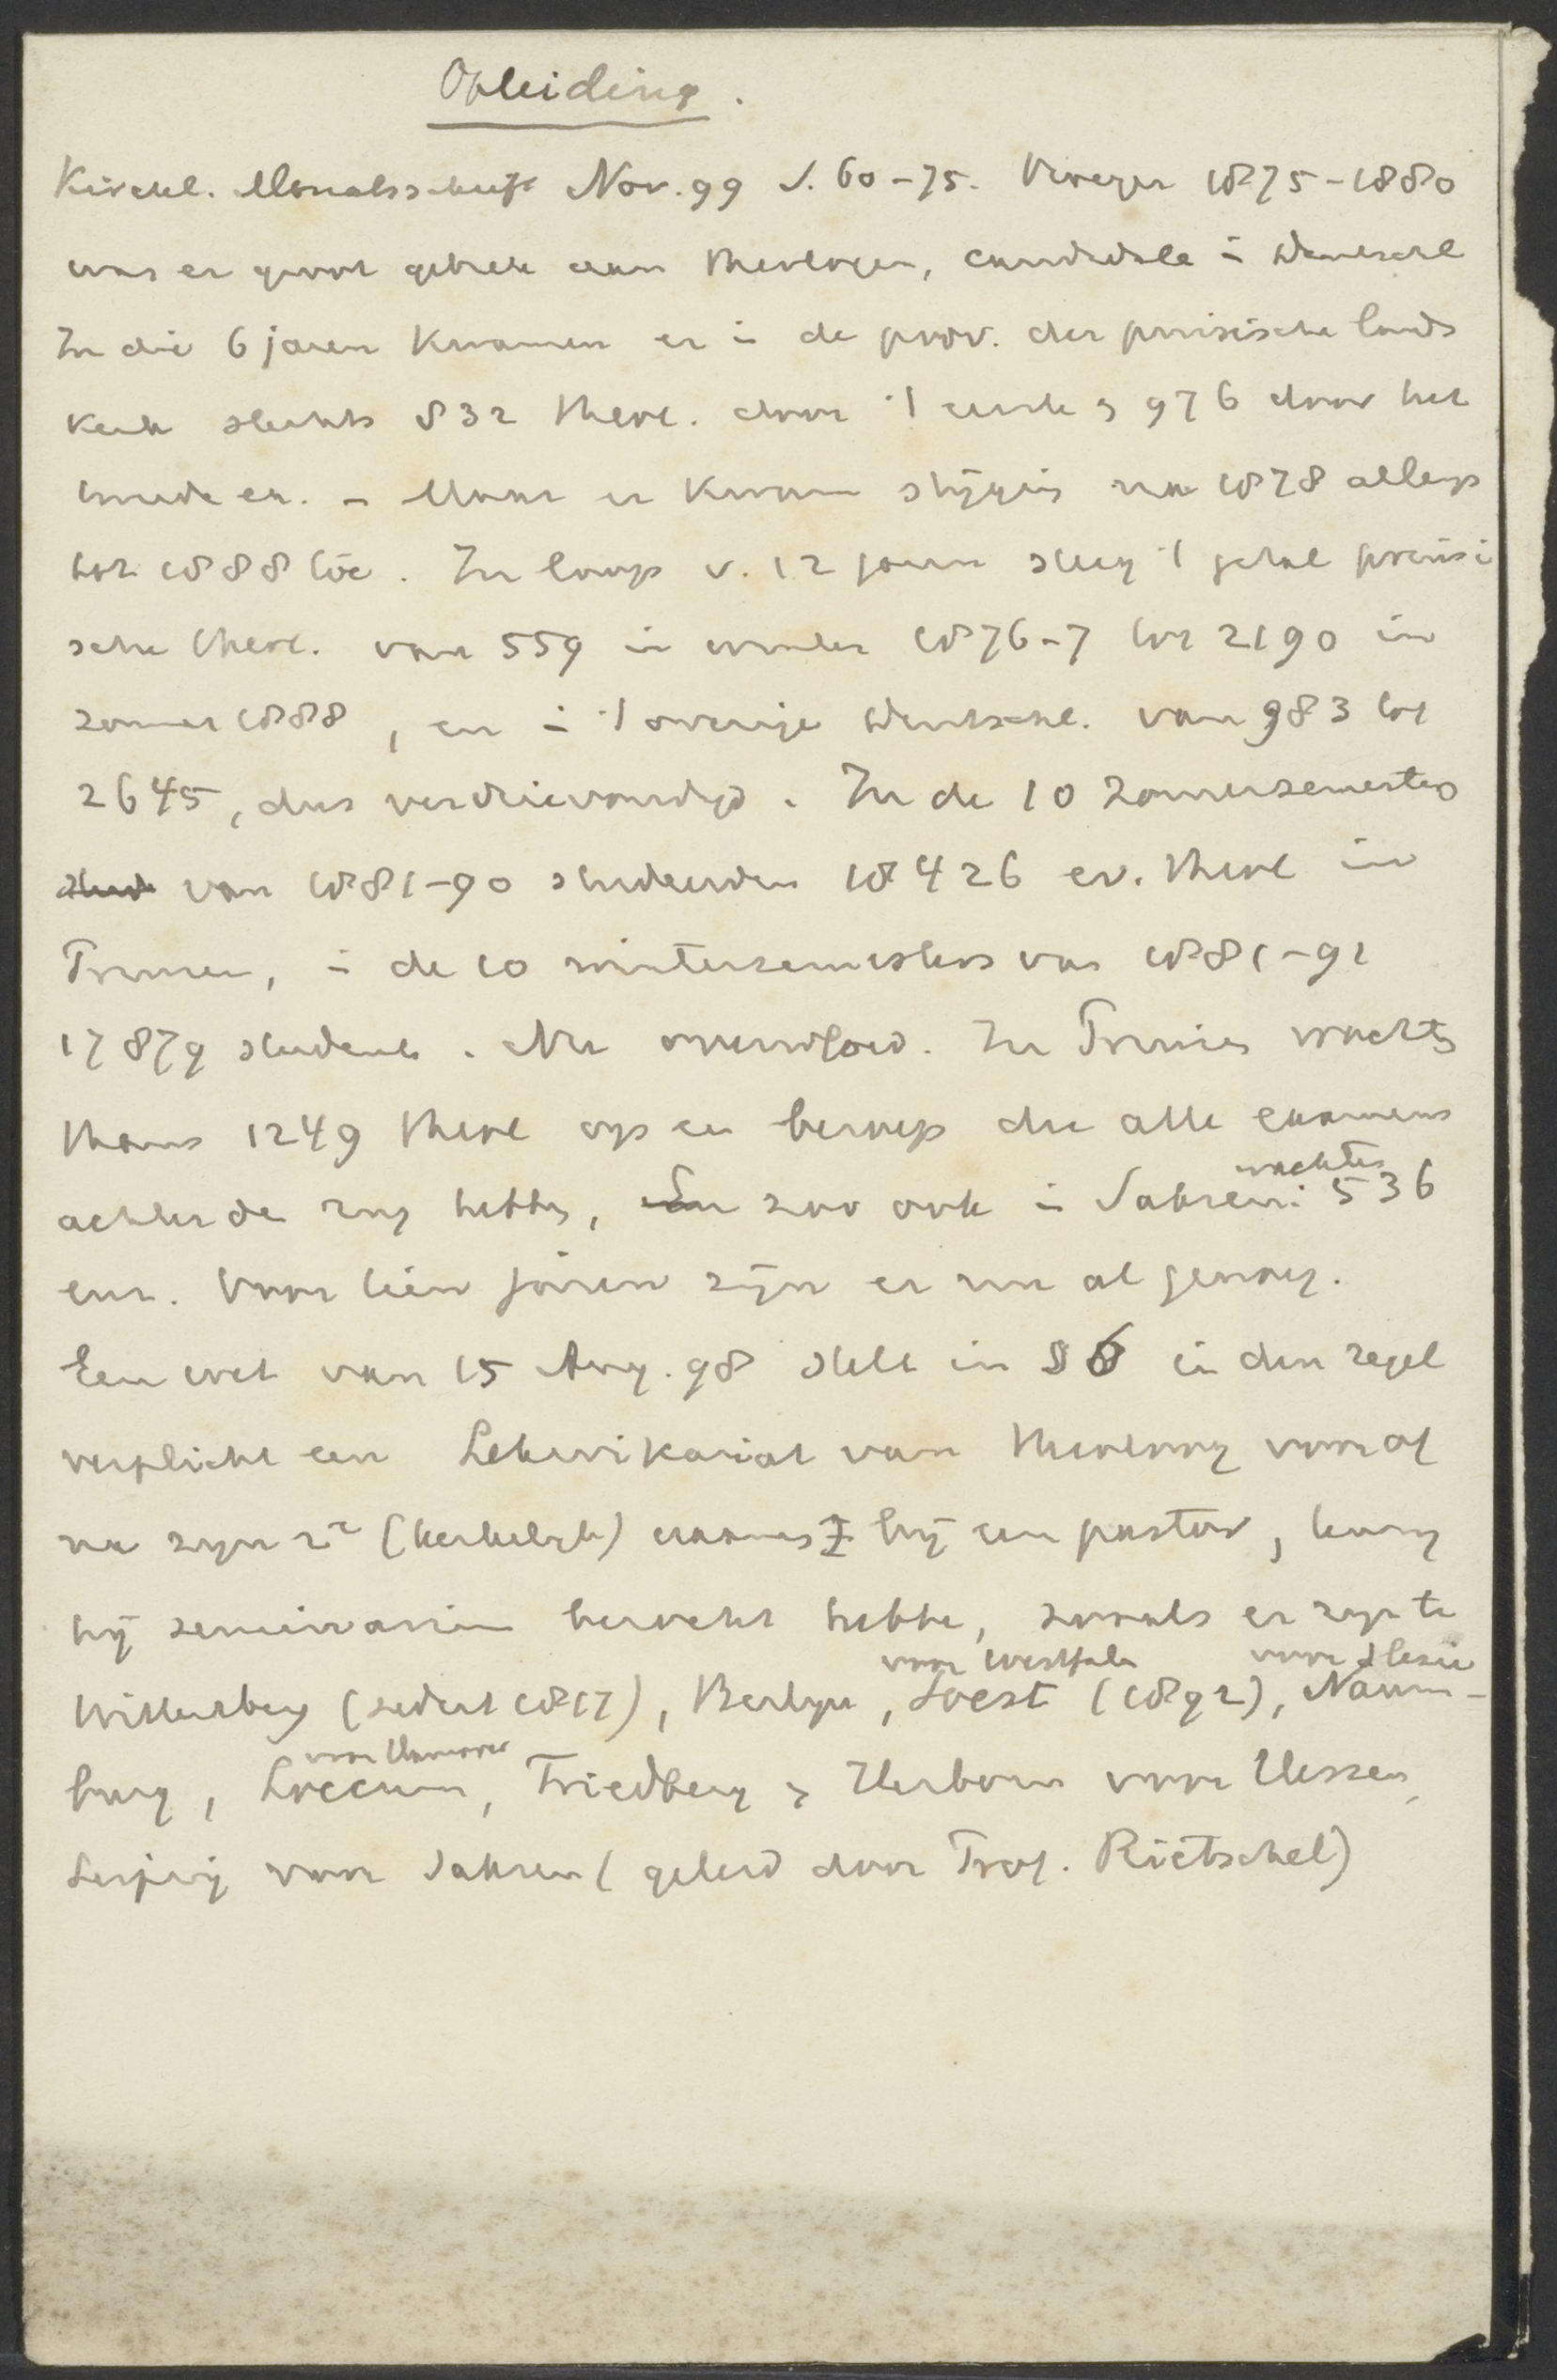 Opleiding.
Kirchl. Monatsschrift Nov. 99 S. 60-75. Vroeger 1875-1880
was er groot gebrek aan theologen, candidate in Duitschl
In die 6 jaren kwamen er in de prov. der pruisische lands
kerk slechts 832 theol. door 't eerste & 976 door het
tweede ex. - Maar er kwam stijging na 1878 alleen
tot 1888 toe. In loop v. 12 jaren steeg 't getal pruisi
sche theol. van 559 in winter 1876-7 tot 2190 in
zomer 1888, en in 't overige Duitschl. van 983 tot
2645, dus verdrievoudigd. In de 10 zomersemesters
stud van 1881-90 studeerden 18426 ev. theol in
Pruisen, in de 10 wintersemesters van 1881-91
17879 students. Nu overvloed. In Pruisen wachts
thans 1249 theol op een beroep die alle examens
achter de rug hebben, En zoo ook in Sahsen: wachten 536
enz. Voor tien jaren zijn er nu al genoeg.
Een wet van 15 Aug. 98 stelt in § 6 in den regel
verplicht een Lehrvikariat van theoloog vooraf
na zijn 2e (kerkelijk) examen bij een pastor, tenzij
hij seminarium bezocht hebbe, zooals er zijn te
Wittenberg (sedert 1817), Berlijn, voor Westfalen Soest (1892), voor Silesie Naum-
burg, voor Hannover Loccum, Friedberg & Herborn voor Hessen,
Leipzig voor Sahsen (geleid door Prof. Rietschel)